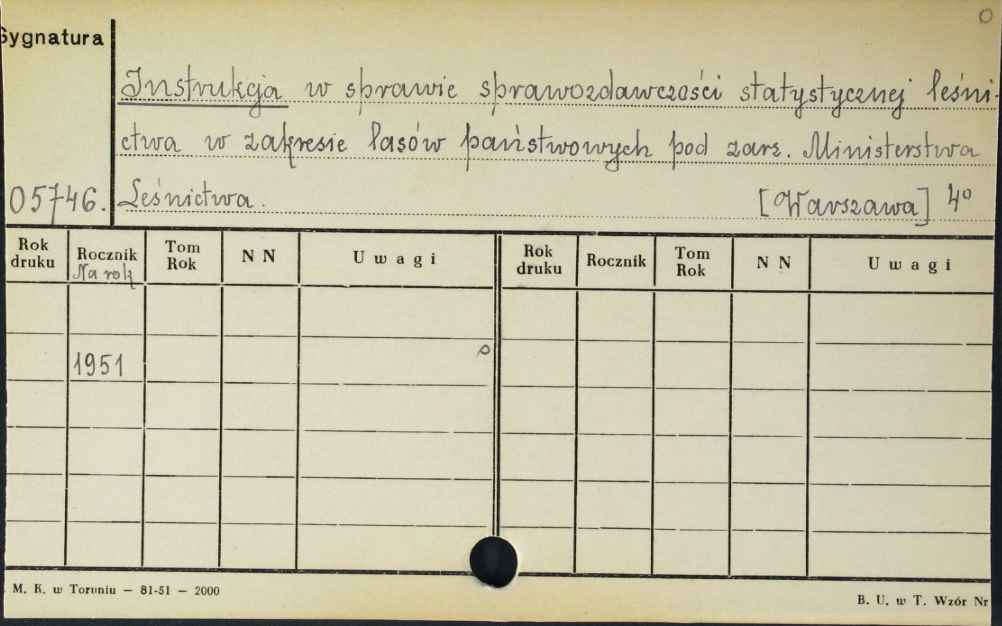 0
Sygnatura
Instrukcja w sprawie sprawozdawczości statystycznej leśni-
ctwa w zakresie lasów państwowych pod zarz. Ministerstwa
05746. Leśnictwa. [Warszawa] 4º
Rok druku Rocznik Na rok Tom Rok N N Uwagi Rok druku Rocznik Tom Rok N N Uwagi
1951
M. K. w Toruniu — 81-51 — 2000
B. U. w T. Wzór Nr